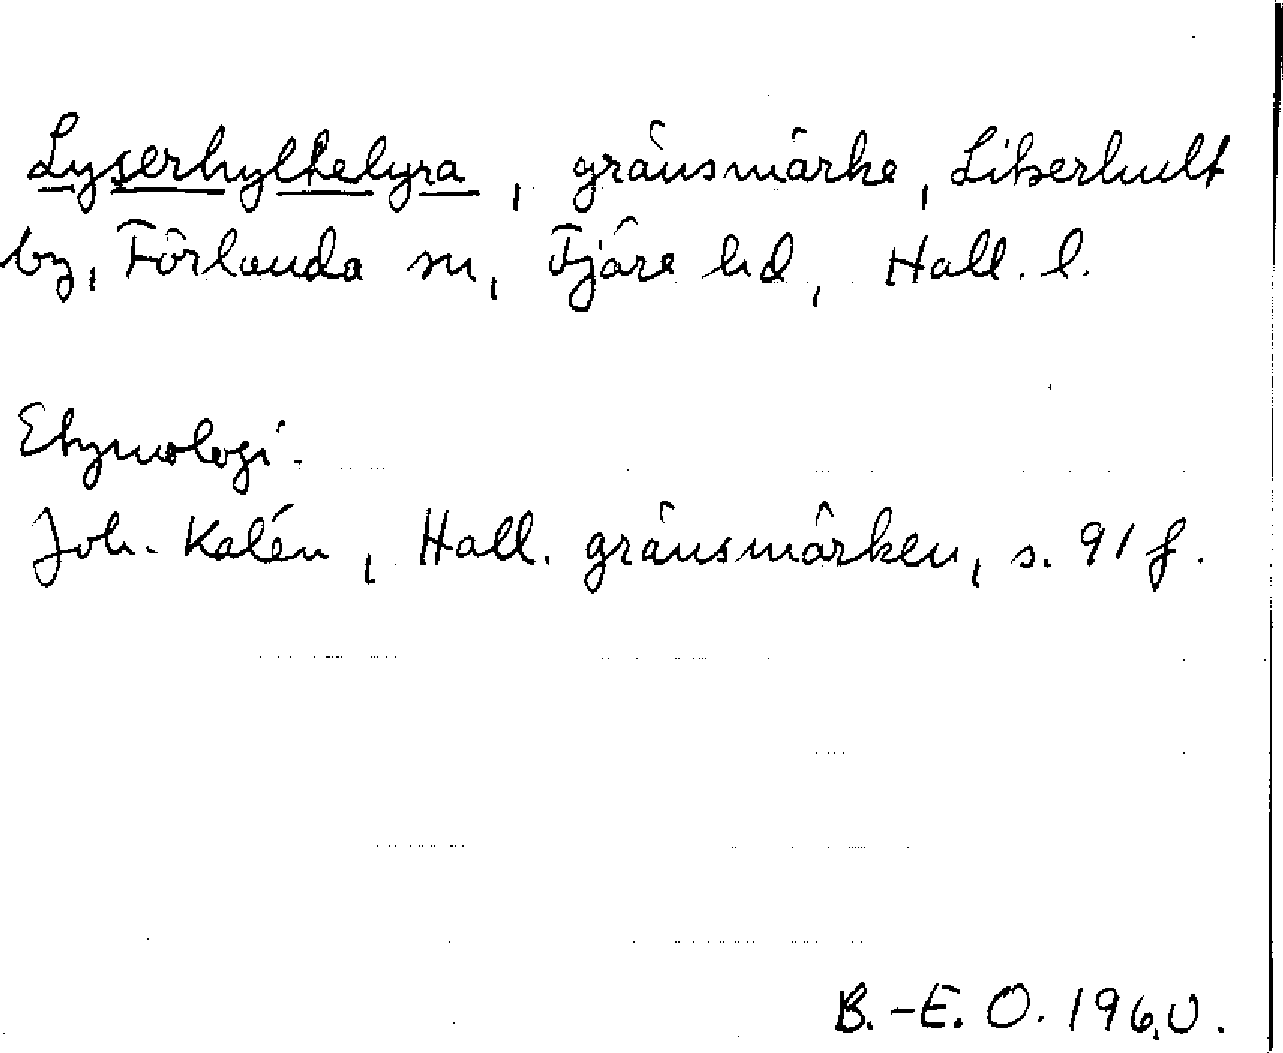 Lyserhyltelyra, gränsmärke, Liserhult
by, Förlanda sn, Fjäre hd, Hall. l.
Etymologi.
Joh. Kalén, Hall. gränsmärken, s. 91 f.
B.-E. O. 1960.